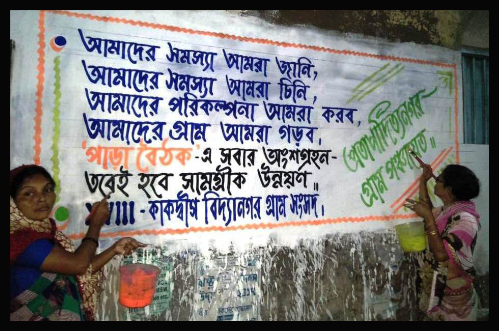 আমাদের সমস্যা আমরা জানি,
আমাদের সমস্যা আমরা চিনি,
আমাদের পরিকল্পনা আমরা করব,
আমাদের গ্রাম আমরা গড়ব,
'পাড়া বৈঠক'-এ সবার অংশগ্রহন-
তবেই হবে সামগ্রীক উন্নয়ণ॥
VIII - কাকদ্বীপ বিদ্যানগর গ্রাম সংসদ।
প্রতাপাদিত্যনগর
গ্রাম পঞ্চায়েত॥